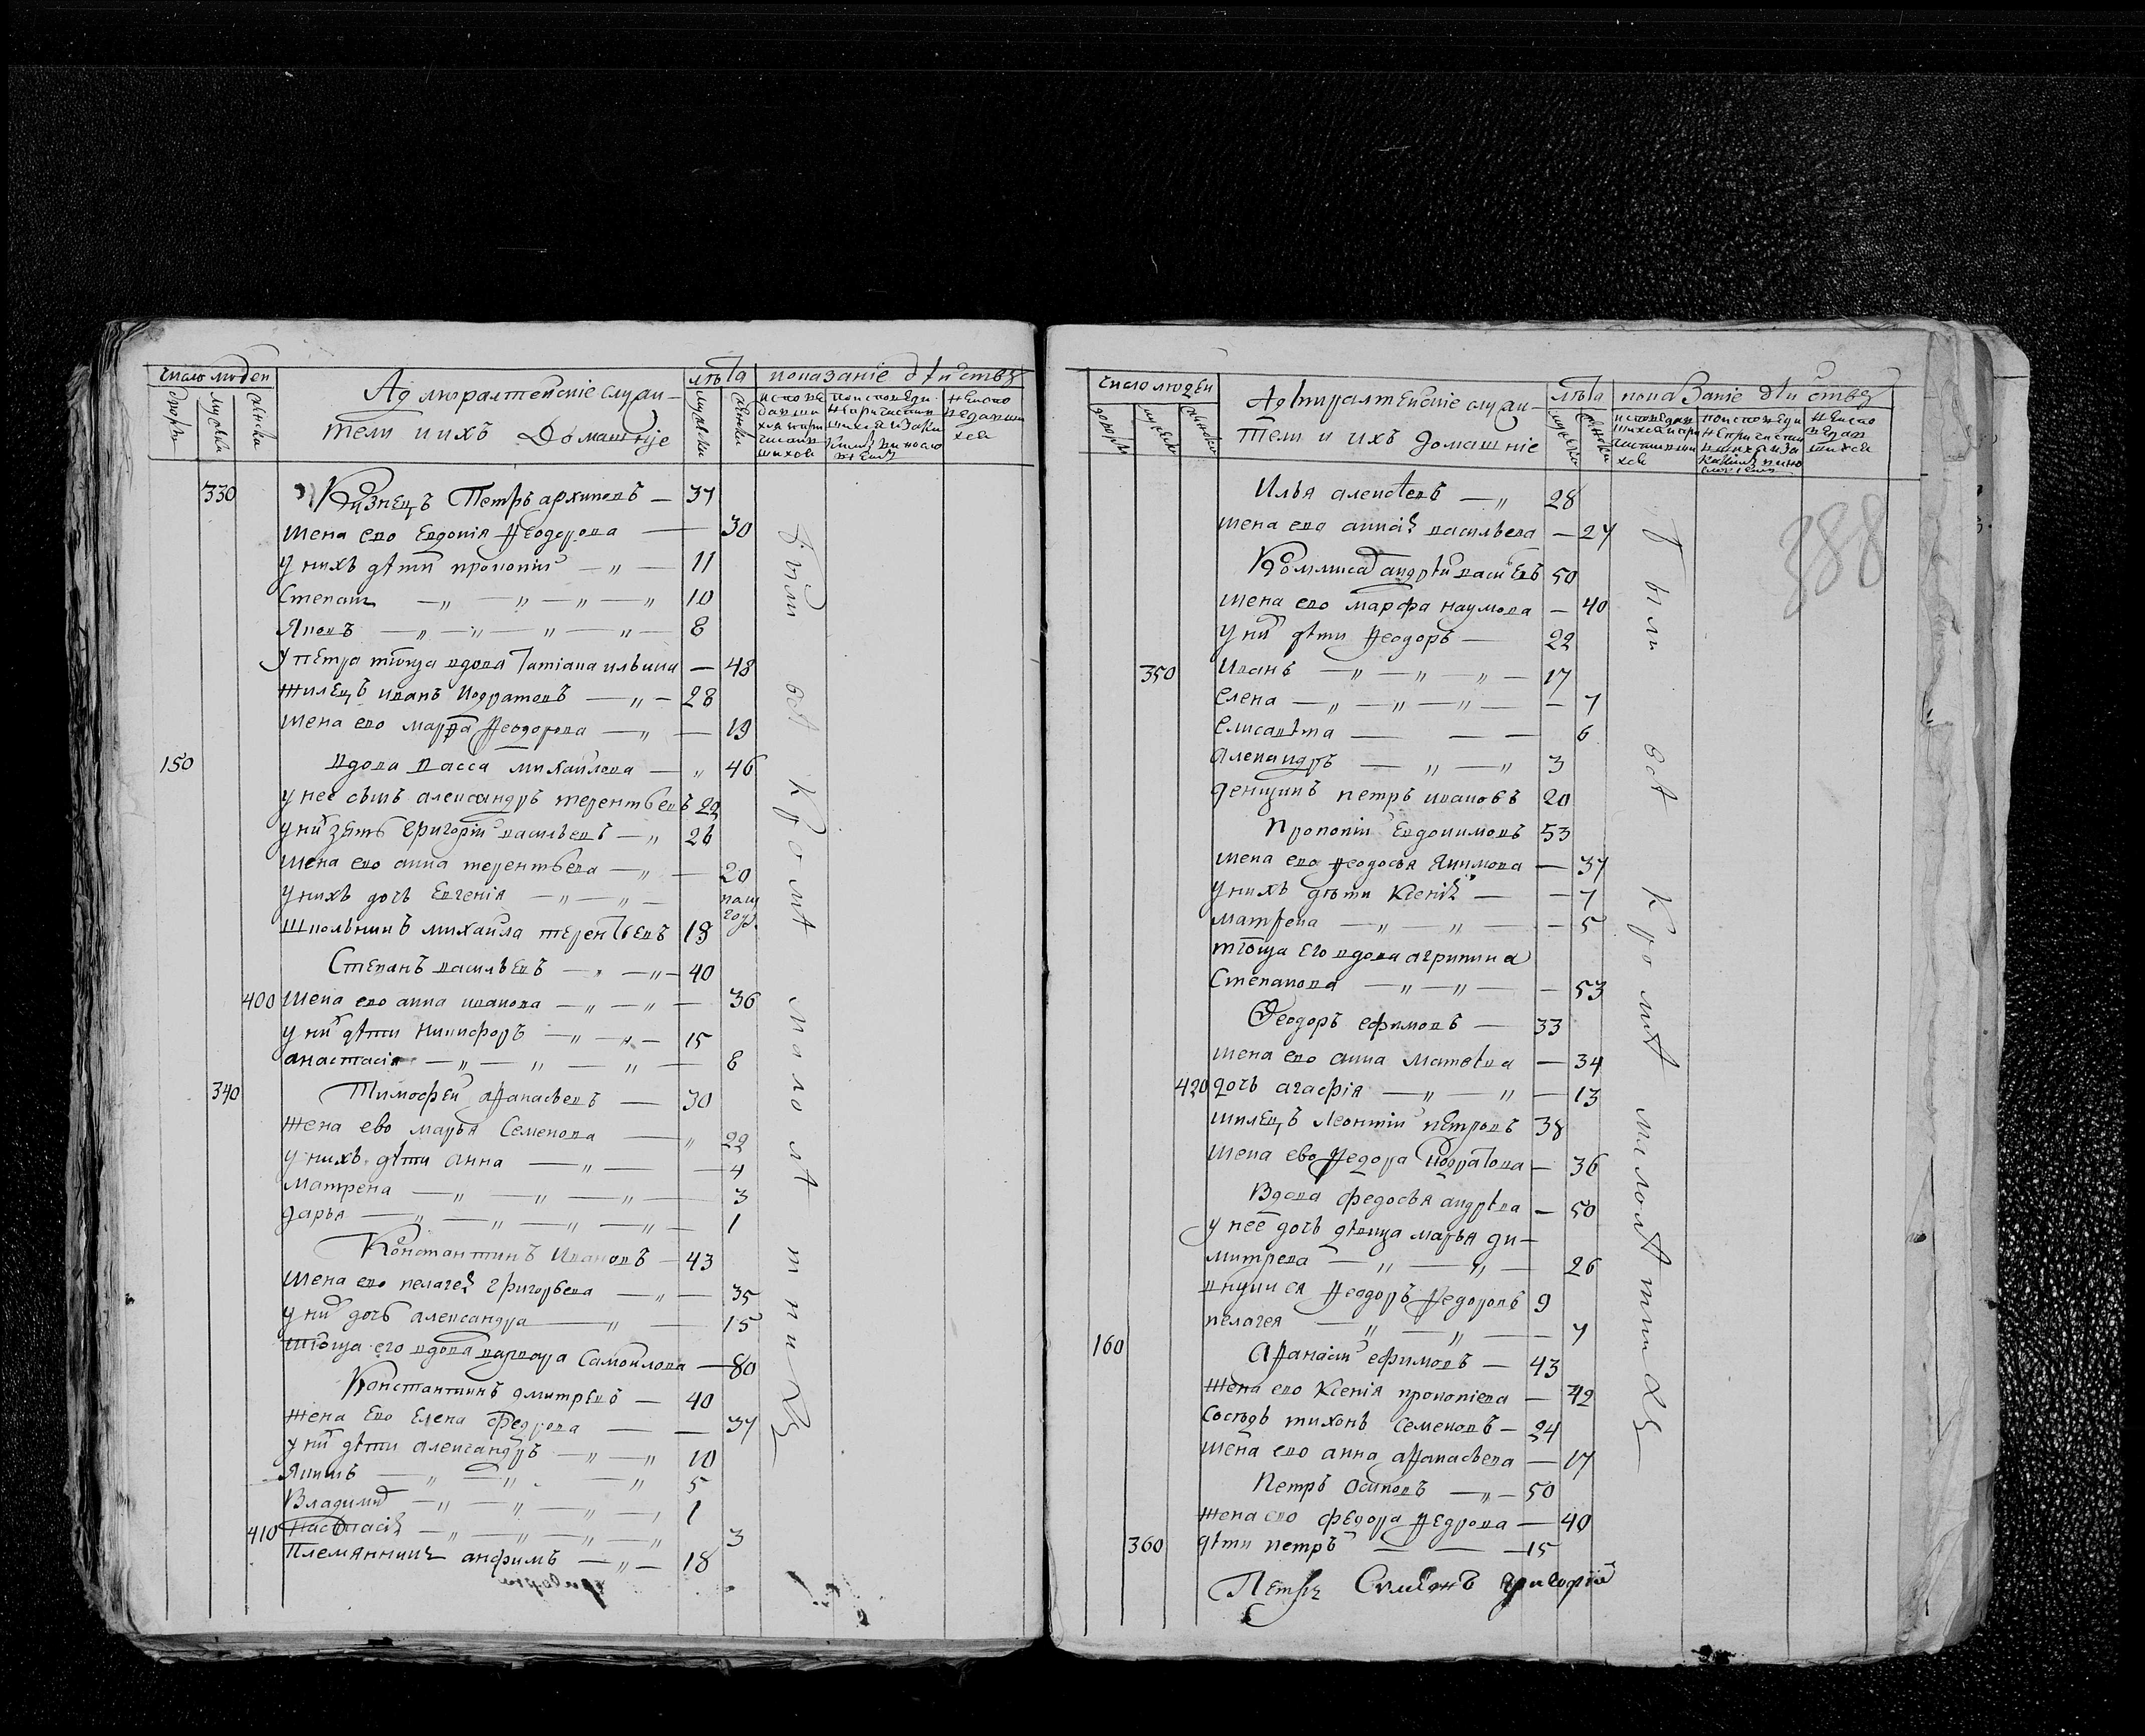 число людей
Адмиралтейскіе служи-
тели и ихъ Домашніе
лѣта
показаніе дѣйствъ
дворы
мужеска
женска
мужеска
женска
330 Кузнецъ Петръ архиповъ — 37
жена ево Евдокія Ѳеодорова — 30
у нихъ дѣти прокопій — „ — 11
Степанъ — „ — „ — „ — „ 10
Яковъ — „ — „ — „ — „ — 8
у петра тѣща вдова Татіана ильина — 48
жилецъ иванъ Кодратовъ — „ — 28
жена ево марѳа Ѳеодорова — „ — 19
150 вдова васса михайлова — „ 46
у нее сынъ александръ терентьевъ 22
у них зять Григорій васильевъ — „ 26
жена ево анна терентьева — „ — 20
у нихъ дочь Евгенія — „ — „ — пол
год.
школьникъ михаила терентьевъ 18
Степанъ васильевъ — „ — „ — 40
400 жена ево анна иванова — „ — „ — 36
у них дѣти никифоръ — „ — „ — 15
анастасія — „ — „ — „ — 8
340 Тимофей аѳанасьевъ — 30
жена ево марья Семенова — „ 22
у нихъ дѣти анна — „ — — 4
матрена — „ — „ — „ — 3
дарья — „ — „ — „ — „ — 1
Константинъ Ивановъ — 43
жена ево пелагея Григорьева — „ — 35
у них дочь александра — „ — 15
тѣща его вдова варвара Самойлова — 80
Константинъ дмитревъ — 40
жена Ево Елена Федрова — — 37
у них дѣти александръ — „ — „ 10
Якимъ — „ — „ — „ 5
Владимир — „ — „ — „ — , 1
410 настасія — „ — „ — „ — „ 3
Племянникъ анфимъ — „ — 18
были всѣ кромѣ малолѣтникъ
число людей
Адмиралтейскіе служи-
тели и ихъ домашніе
лѣта
показаніе дѣйствъ
388
Илья алексѣевъ — „ 28
жена ево анна васильева — 27
Коммисар андрѣй васиьевъ 50
жена ево марфа наумова — 40
у них дѣти Ѳеодоръ — 22
350 Иванъ — „ — „ — „ — 17
елена — „ — „ — „ — — 7
елисавѣта — — — 6
александръ — „ — „ 3
денщикъ петръ ивановъ 20
прокопій Евдокимовъ 53
жена ево Ѳеодосья Якимова — 37
у нихъ дѣти Ксенія — — 7
матрена — „ — „ — — 5
тѣща его вдова агрипина
Степанова — „ — „ — — 53
Ѳеодоръ ефимовъ — 33
жена ево анна матвѣева — 34
420 дочь агафія — „ — „ — 13
жилецъ Леонтій петровъ 38
жена ево Ѳедора Кодратова — 36
Вдова федосья андрѣева — 50
у нее дочь дѣвица марья ди-
митрева — „ — „ — 26
внучися Ѳеодоръ Ѳедоровъ 9
пелагея — „ — „ — — 7
160 Аѳанасій ефимовъ — 43
жена ево Ксенія прокопіева — 42
Сосѣдъ тихонъ Семеновъ — 24
жена ево анна аѳанасьева — 17
Петръ осиповъ — „ — 50
жена ево федора Ѳедрова — 40
360 дѣти петръ — — — 15
Петръ Симеонъ григорій
были всѣ кромѣ малолѣтникъ